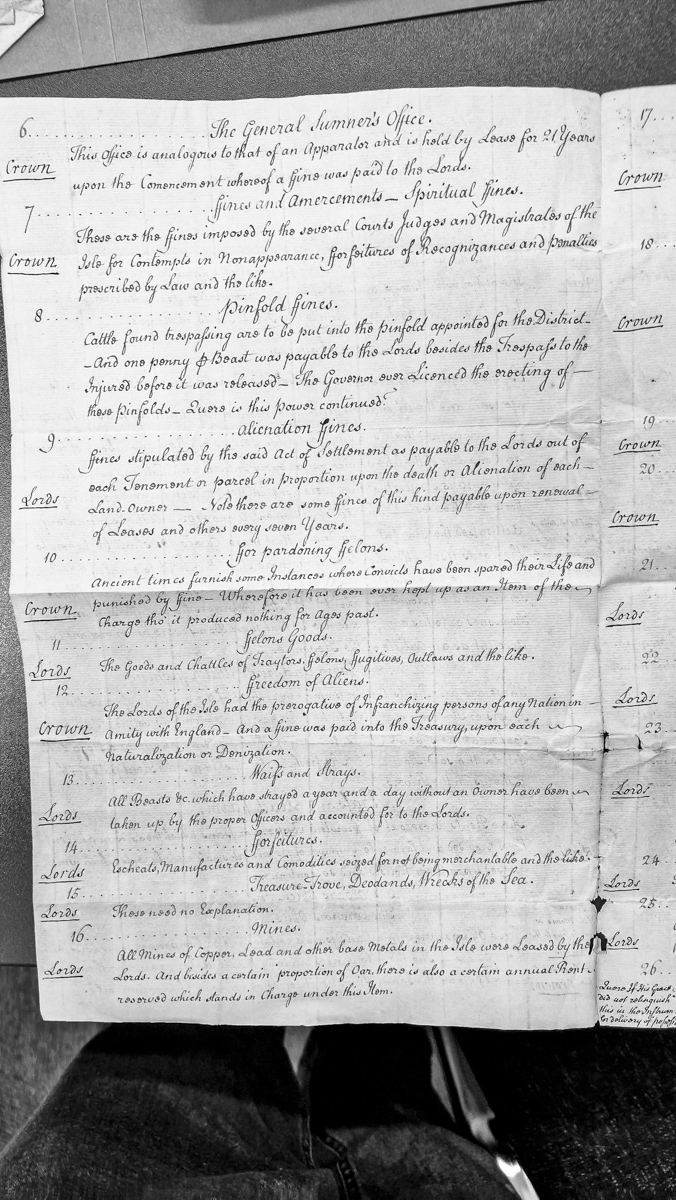 6. . . . . . . . . . . . . . . . The General Sumner's Office.
Crown
This Office is analogous to that of an Apparator and is held by Lease for 21 Years
upon the Comencement whereof a ffine was paid to the Lords.
7 . . . . . . . . . . . . . . . . ffines and Amercements – Spiritual ffines.
Crown
These are the ffines imposed by the several Courts Judges and Magistrates of the
Isle for Contempts in Nonappearance, fforfeitures of Recognizances and penalties
prescribed by Law and the like.
8 . . . . . . . . . . . . . . . . Pinfold ffines.
Cattle found trespassing are to be put into the Pinfold appointed for the District –
– And one penny ⅌ Beast was payable to the Lords besides the Trespass to the
Injured before it was released – The Governor ever Licenced the erecting of –
these Pinfolds – Quere is this power continued?
9. . . . . . . . . . . . . . . . Alienation ffines.
Lords
ffines stipulated by the said Act of Settlement as payable to the Lords out of
each Tenement or parcel in proportion upon the death or Alienation of each –
Land-Owner — Note there are some ffines of this kind payable upon renewal –
of Leases and others every seven Years.
10 . . . . . . . . . . . . . . . . ffor pardoning ffelons.
Crown
Ancient times furnish some Instances where Convicts have been spared their Life and
punished by ffine – Wherefore it has been ever kept up as an Item of the
Charge tho' it produced nothing for Ages past.
11 . . . . . . . . . . . . . . . . ffelons Goods.
Lords
The Goods and Chattles of Traytors, ffelons, ffugitives, Outlaws and the like.
12 . . . . . . . . . . . . . . . . ffreedom of Aliens.
Crown
The Lords of the Isle had the prerogative of Infranchizing persons of any Nation in –
Amity with England – And a ffine was paid into the Treasury, upon each
Naturalization or Denization.
13 . . . . . . . . . . . . . . . . Waifs and Strays.
Lords
All Beasts &c. which have strayed a year and a day without an Owner have been
taken up by the proper Officers and accounted for to the Lords.
14 . . . . . . . . . . . . . . . . fforfeitures.
Lords
Escheats, Manufactures and Comodities seized for not being merchantable and the like. –
15 . . . . . . . . . . . . . . . . Treasure-Trove, Deodands, Wrecks of the Sea.
Lords
These need no Explanation.
16 . . . . . . . . . . . . . . . . Mines.
Lords
All Mines of Copper, Lead and other base Metals in the Isle were Leased by the
Lords. And besides a certain proportion of Oar, there is also a certain annual Rent
reserved which stands in Charge under this Item.
17 . .
Crown
18 . .
Crown
19 . .
Crown
20 . .
Crown
21 . .
Lords
22 . .
Lords
23 . .
Lords
24 . .
Lords
25 . .
Lords
26 . .
Quere If His Grace
did not relinquish
this in the
for delivery of